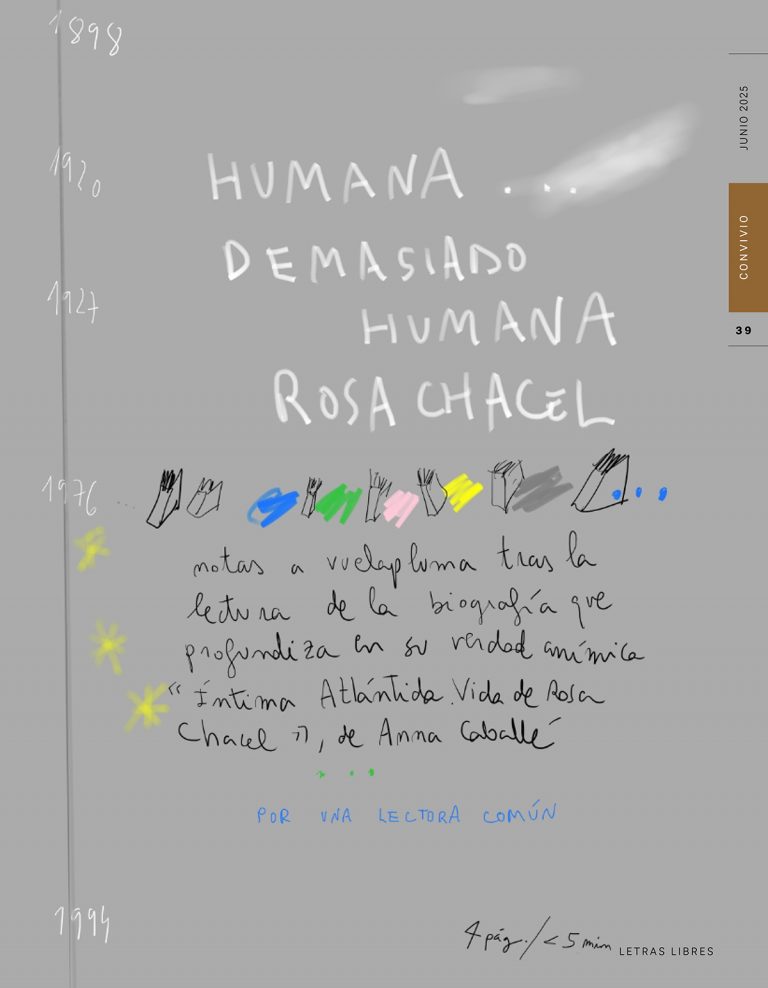 1898
1920
1927
1976
1994
HUMANA ...
DEMASIADO
HUMANA
ROSA CHACEL
notas a vuelapluma tras la
lectura de la biografía que
profundiza en su verdad anímica
“Íntima Atlántida. Vida de Rosa
Chacel”, de Anna Caballé
...
POR UNA LECTORA COMÚN
4 pág. / < 5 min
LETRAS LIBRES
JUNIO 2025
CONVIVIO
39